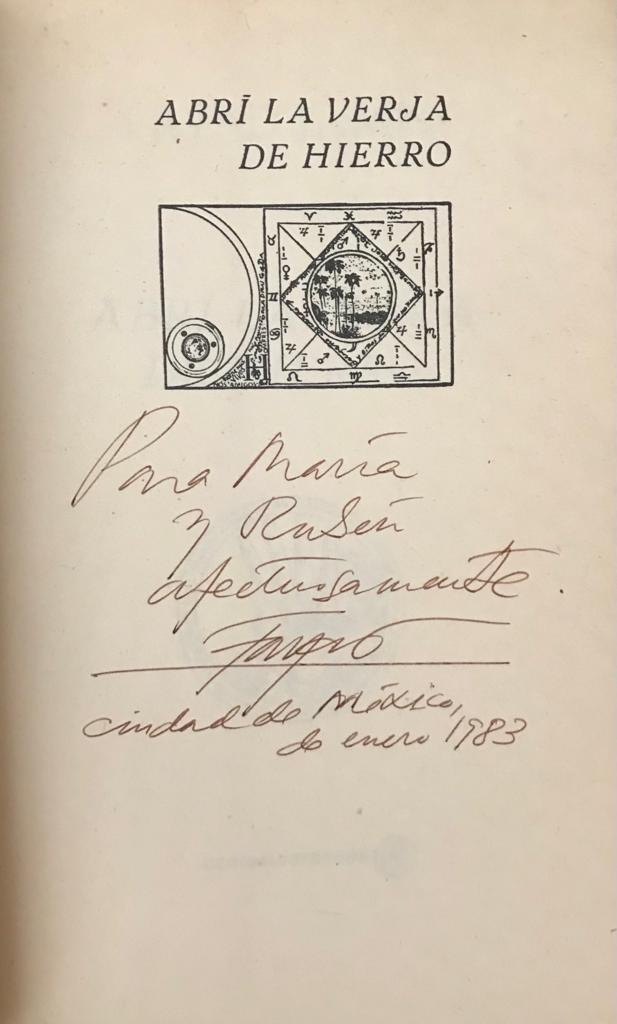 ABRĪ LA VERJA
DE HIERRO
Para María
y Rubén
afectuosamente.
ciudad de México,
de enero 1983